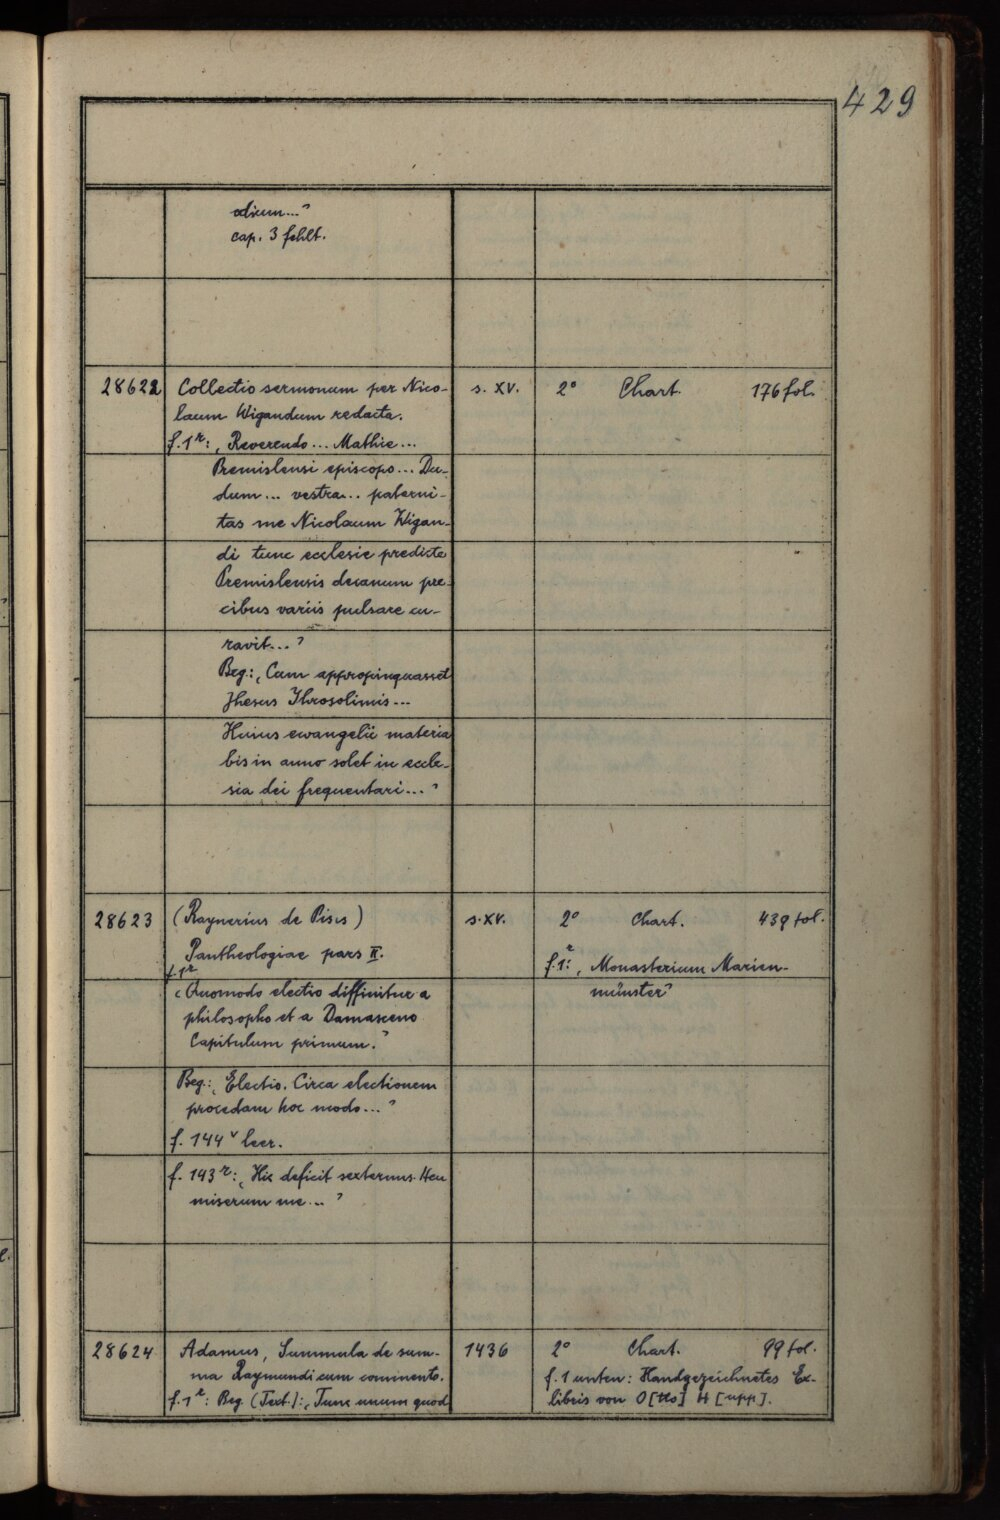 429
dium..."
cap. 3 fehlt.
28622 Collectio sermonum per Nico- s. XV. 2° Chart. 176 fol.
laum Wigandum redacta.
f. 1r: „Reverendo... Mathie...
Premislensi episcopo... Du-
dum... vestra... paterni-
tas me Nicolaum Wigan-
di tunc ecclesie predicte
Premislensis decanum pre-
cibus variis pulsare cu-
ravit..."
Beg: „Cum appropinquasset
Jhesus Jhrosolimis...
Huius ewangelii materia
bis in anno solet in eccle-
sia dei frequentari..."
28623 (Raynerius de Pisis) s. XV. 2° Chart. 439 fol.
Pantheologiae pars II. f. 1r: „Monasterium Marien-
f. 1r münster"
„Quomodo electio diffinitur a
philosopho et a Damasceno
Capitulum primum."
Beg.: „Electio. Circa electionem
procedam hoc modo..."
f. 144v leer.
f. 143r: „Hic deficit sexternus. Heu
miserum me..."
28624 Adamus, Summula de sum- 1436 2° Chart. 99 fol.
ma Raymundi cum commento. f. 1 unten: Handgezeichnetes Ex-
f. 1r: Beg. (Text.): „Tunc unum quod libris von O[tto] H[upp].